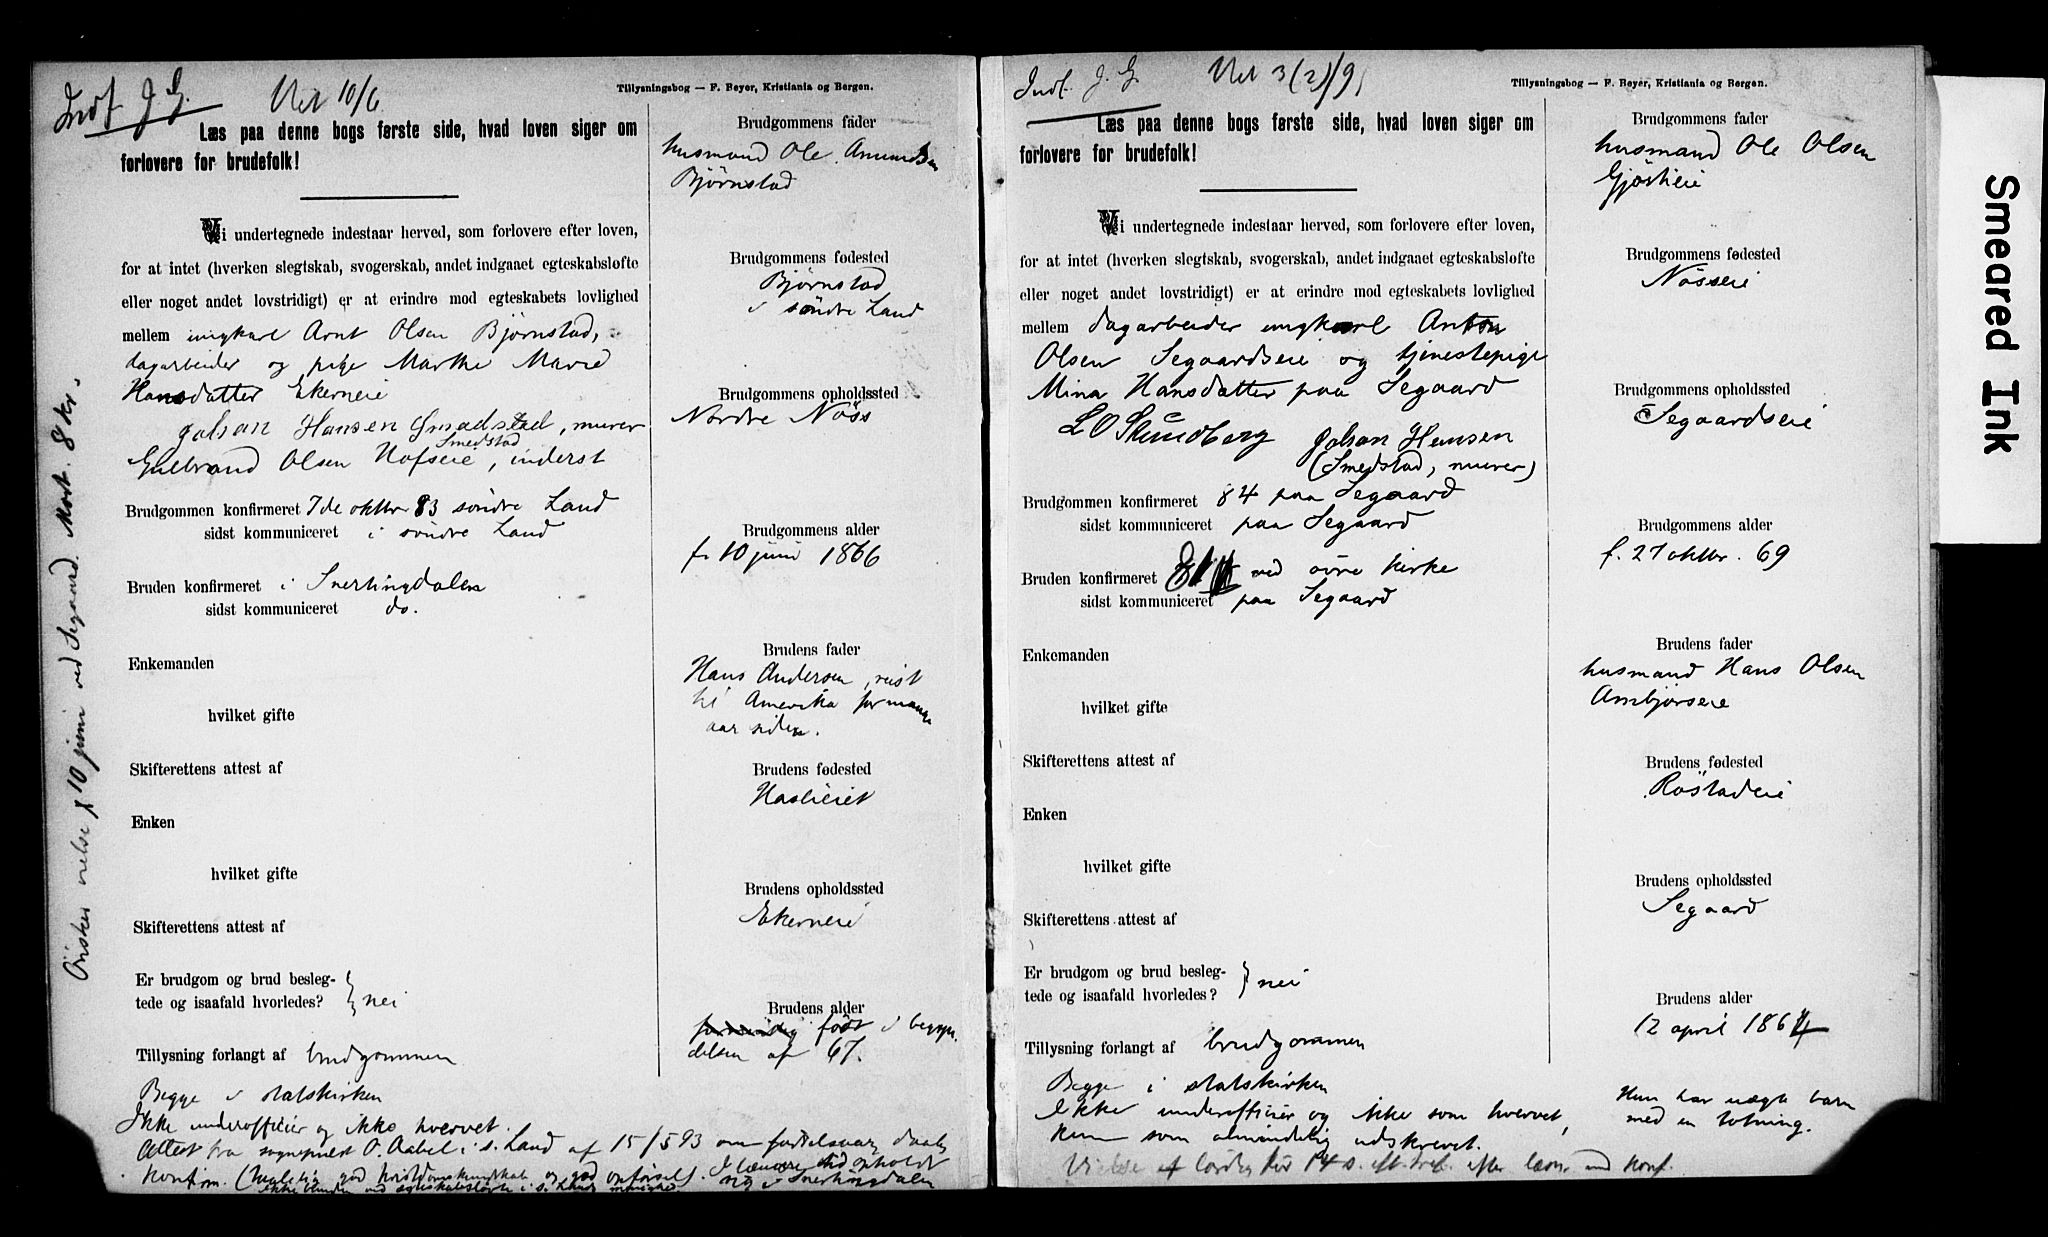 Indf. J. G.
Viet 10/6
Tillysningsbog — F. Beyer, Kristiania og Bergen.
Læs paa denne bogs første side, hvad loven siger om
forlovere for brudefolk!
Vi undertegnede indestaar herved, som forlovere efter loven,
for at intet (hverken slegtskab, svogerskab, andet indgaaet egteskabsløfte
eller noget andet lovstridigt) er at erindre mod egteskabets lovlighed
mellem ungkarl Arnt Olsen Bjørnstad,
dagarbeider og pige Marthe Marie
Hansdatter Ekerneie
Johan Hansen Smedstad, murer
Smedstad
Gulbrand Olsen Hofseie, inderst
Brudgommen konfirmeret 7de oktbr 83 søndre Land
sidst kommuniceret i søndre Land
Bruden konfirmeret i Snertingdalen
sidst kommuniceret do.
Enkemanden
hvilket gifte
Skifterettens attest af
Enken
hvilket gifte
Skifterettens attest af
Er brudgom og brud besleg-
tede og isaafald hvorledes? } nei
Tillysning forlangt af brudgommen
Begge i statskirken
Ikke underofficier og ikke hvervet.
Attest fra sogneprest O. Aabel i s. Land af 15/5 93 om
konfirm.
Brudgommens fader
husmand Ole Amundsen
Bjørnstad
Brudgommens fødested
Bjørnstad
i søndre Land
Brudgommens opholdssted
Nordre Nøss
Brudgommens alder
f. 10 juni 1866
Brudens fader
Hans Andersen, reist
til Amerika for mange
aar siden.
Brudens fødested
Haslieiet
Brudens opholdssted
Ekerneie
Brudens alder
født i begyn-
delsen af 67.
Ønskes vielse 10 juni ved Segaard. Mort. 8 kr.
Indf. J. G.
Viet 3(2)/9
Tillysningsbog — F. Beyer, Kristiania og Bergen.
Læs paa denne bogs første side, hvad loven siger om
forlovere for brudefolk!
Vi undertegnede indestaar herved, som forlovere efter loven,
for at intet (hverken slegtskab, svogerskab, andet indgaaet egteskabsløfte
eller noget andet lovstridigt) er at erindre mod egteskabets lovlighed
mellem dagarbeider ungkarl Anton
Olsen Segaardseie og tjenestepige
Mina Hansdatter paa Segaard
Johan Hansen
(Smedstad, murer)
Brudgommen konfirmeret 84 paa Segaard
sidst kommuniceret paa Segaard
Bruden konfirmeret ved øvre kirke
sidst kommuniceret paa Segaard
Enkemanden
hvilket gifte
Skifterettens attest af
Enken
hvilket gifte
Skifterettens attest af
Er brudgom og brud besleg-
tede og isaafald hvorledes? } nei
Tillysning forlangt af brudgommen
Begge i statskirken
Ikke underofficier og ikke som hvervet,
kun som almindelig udskrevet.
Brudgommens fader
husmand Ole Olsen
Gjøslieie
Brudgommens fødested
Nøsseie
Brudgommens opholdssted
Segaardseie
Brudgommens alder
f. 27 oktbr. 69
Brudens fader
husmand Hans Olsen
Ambjørseie
Brudens fødested
Røstadeie
Brudens opholdssted
Segaard
Brudens alder
12 april 1864
Hun har uægte barn
med en totning.
Smeared Ink